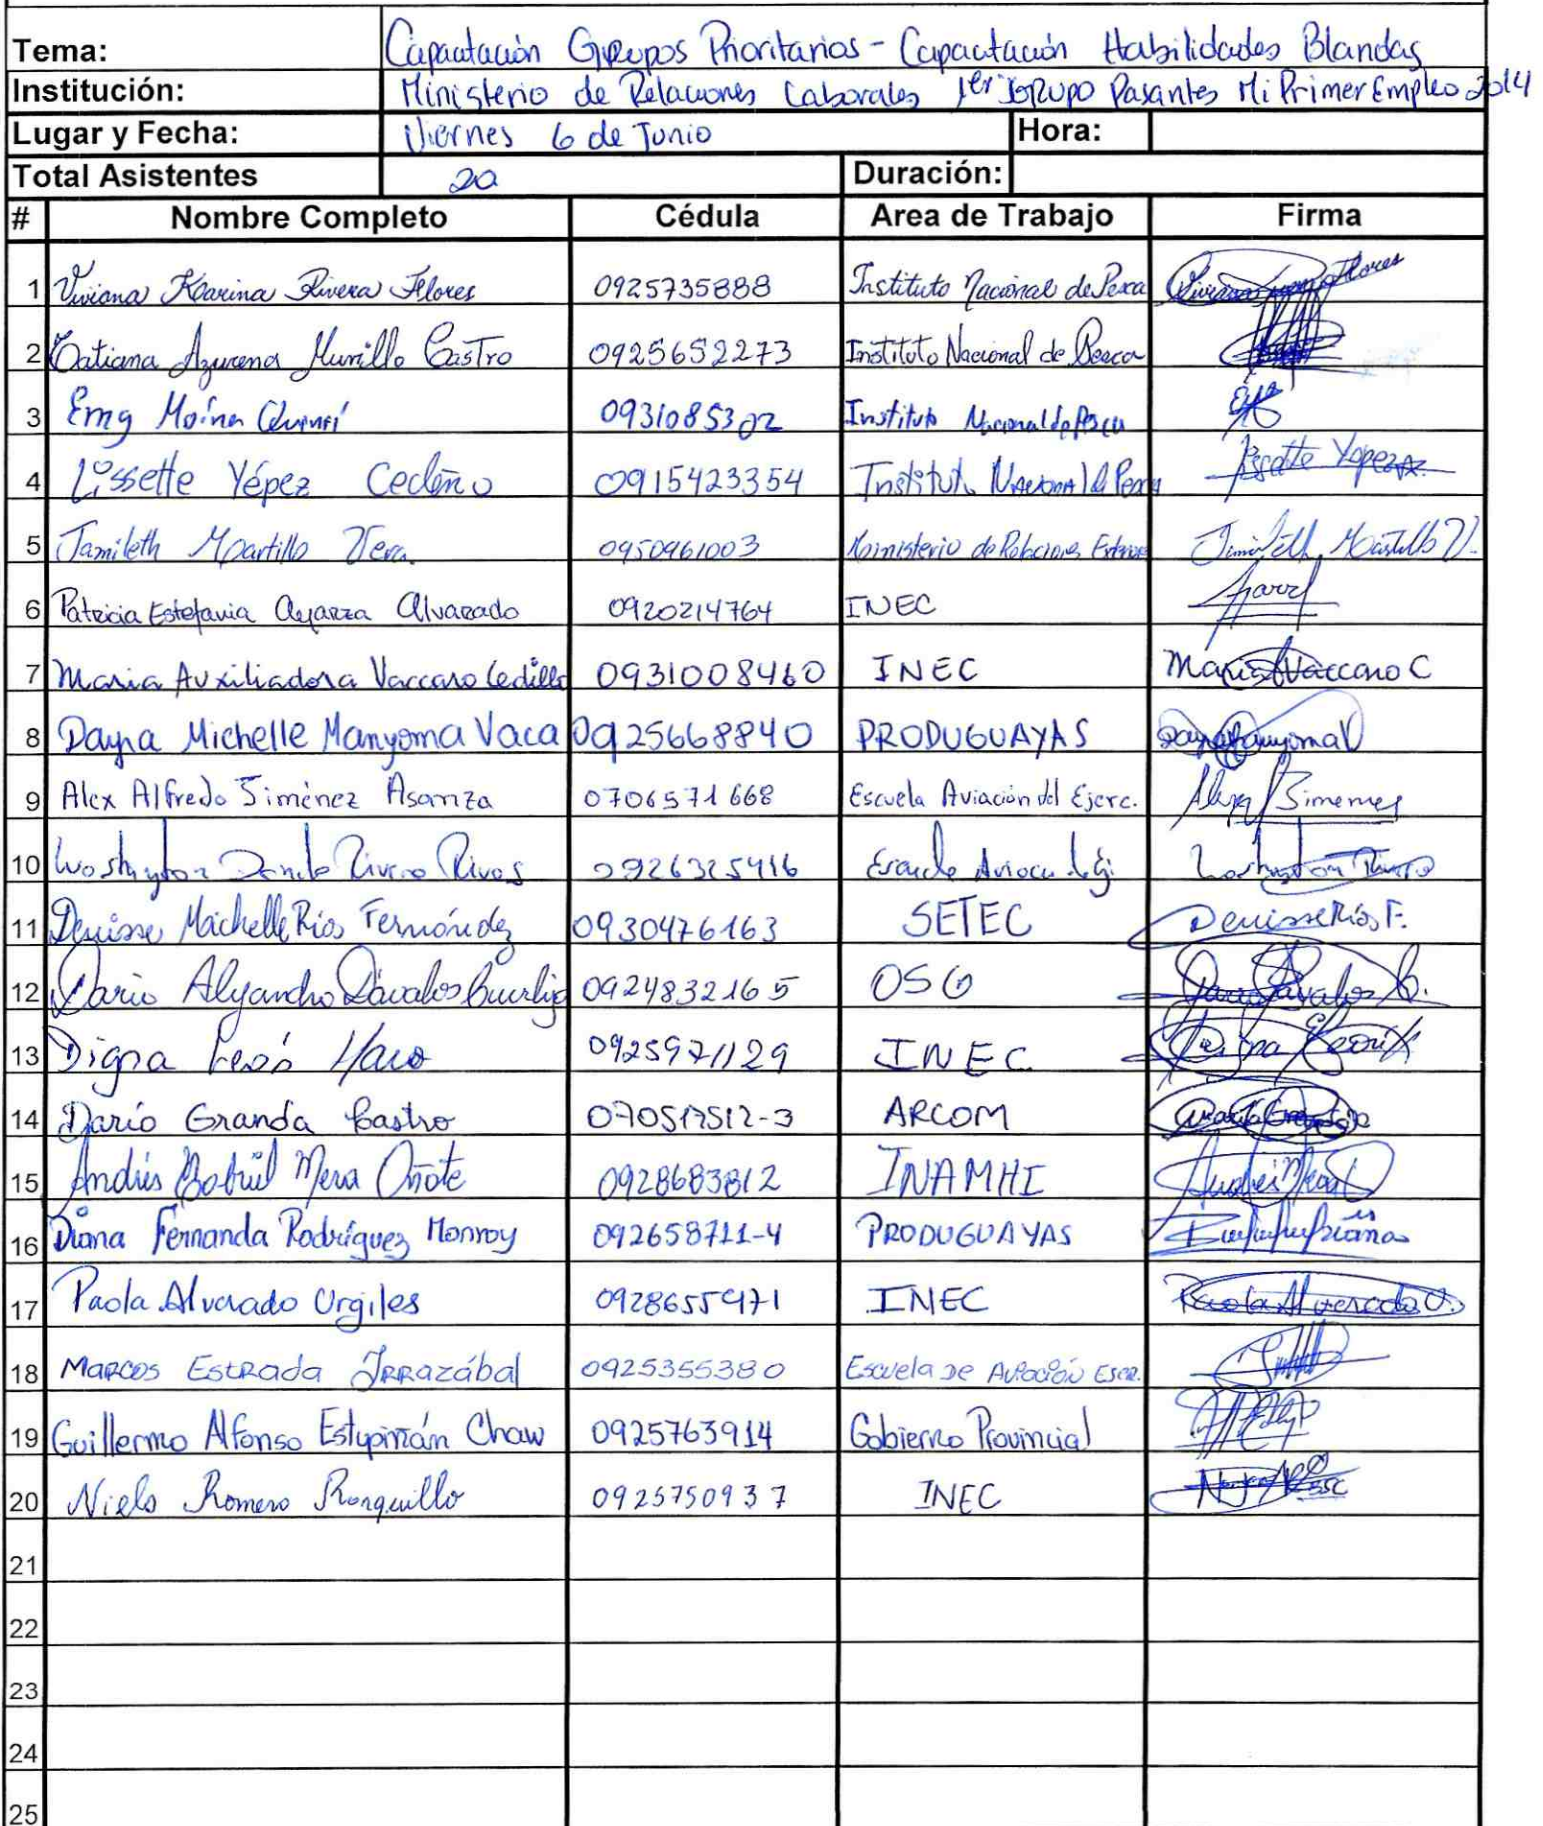 Tema: Capacitación Grupos Prioritarios - Capacitación Habilidades Blandas
Institución: Ministerio de Relaciones Laborales 1er Grupo Pasantes Mi Primer Empleo 2014
Lugar y Fecha: Viernes 6 de Junio Hora:
Total Asistentes 20 Duración:
# Nombre Completo Cédula Area de Trabajo Firma
1 Viviana Karina Rivera Flores 0925735888 Instituto Nacional de Pesca Flores
2 Tatiana Azucena Murillo Castro 0925652273 Instituto Nacional de Pesca
3 Emg Moína 0931085302 Instituto Nacional de Pesca
4 Lissette Yépez Cedeño 0915423354 Instituto Nacional de Pesca Lissette Yepez
5 Jamileth Martillo Vera 0950961003 Ministerio de Relaciones Jamileth Martillo V.
6 Patricia Estefania Ayarza Alvarado 0920214764 INEC
7 Maria Auxiliadora Vaccaro Cedillo 0931008460 INEC Maria Vaccaro C
8 Dayna Michelle Manyoma Vaca 0925668840 PRODUGUAYAS Dayna Manyoma V
9 Alex Alfredo Jiménez Asanza 0706571668 Escuela Aviación del Ejerc. Alex Jimenez
10 Washington Danilo Rivera Rivas 0926325416
11 Denisse Michelle Rios Fernández 0930476163 SETEC Denisse Ríos F.
12 Dario Alejandro Dávalos 0924832165 OSG Dario Davalos
13 Digna León Haro 0925971129 INEC Digna León
14 Darío Granda Castro 070517512-3 ARCOM
15 Andrés Gabriel Mera Oñate 0928683812 INAMHI Andrés Mera
16 Diana Fernanda Rodríguez Monroy 092658711-4 PRODUGUAYAS
17 Paola Alvarado Urgiles 0928655971 INEC Paola Alvarado U.
18 Marcos Estrada Irrazábal 0925355380 Escuela de Aviación
19 Guillermo Alfonso Estupiñán Chaw 0925763914 Gobierno Provincial
20 Niels Romero Ronquillo 0925750937 INEC
21
22
23
24
25